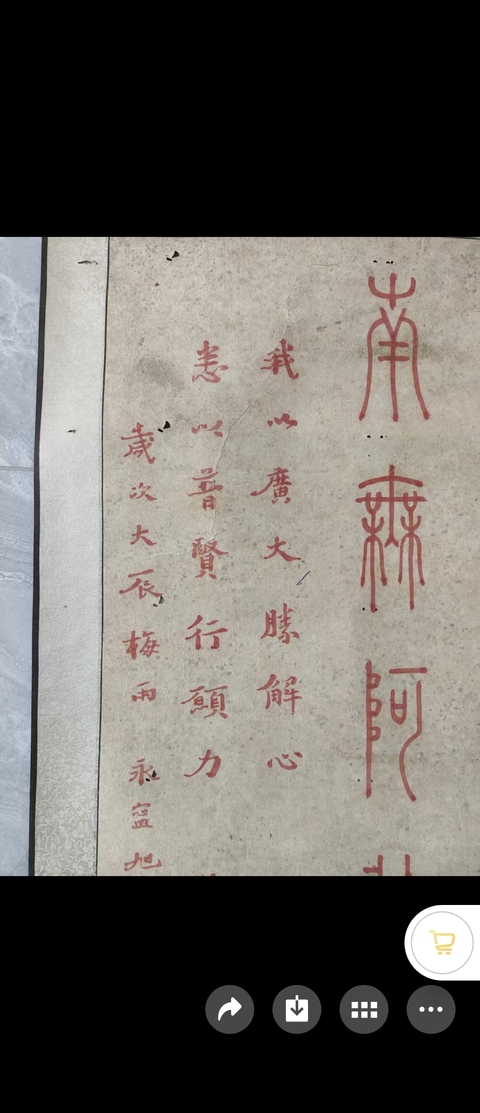 南無阿
我以廣大勝解心
悉以普賢行願力
歲次大辰梅雨 永旭